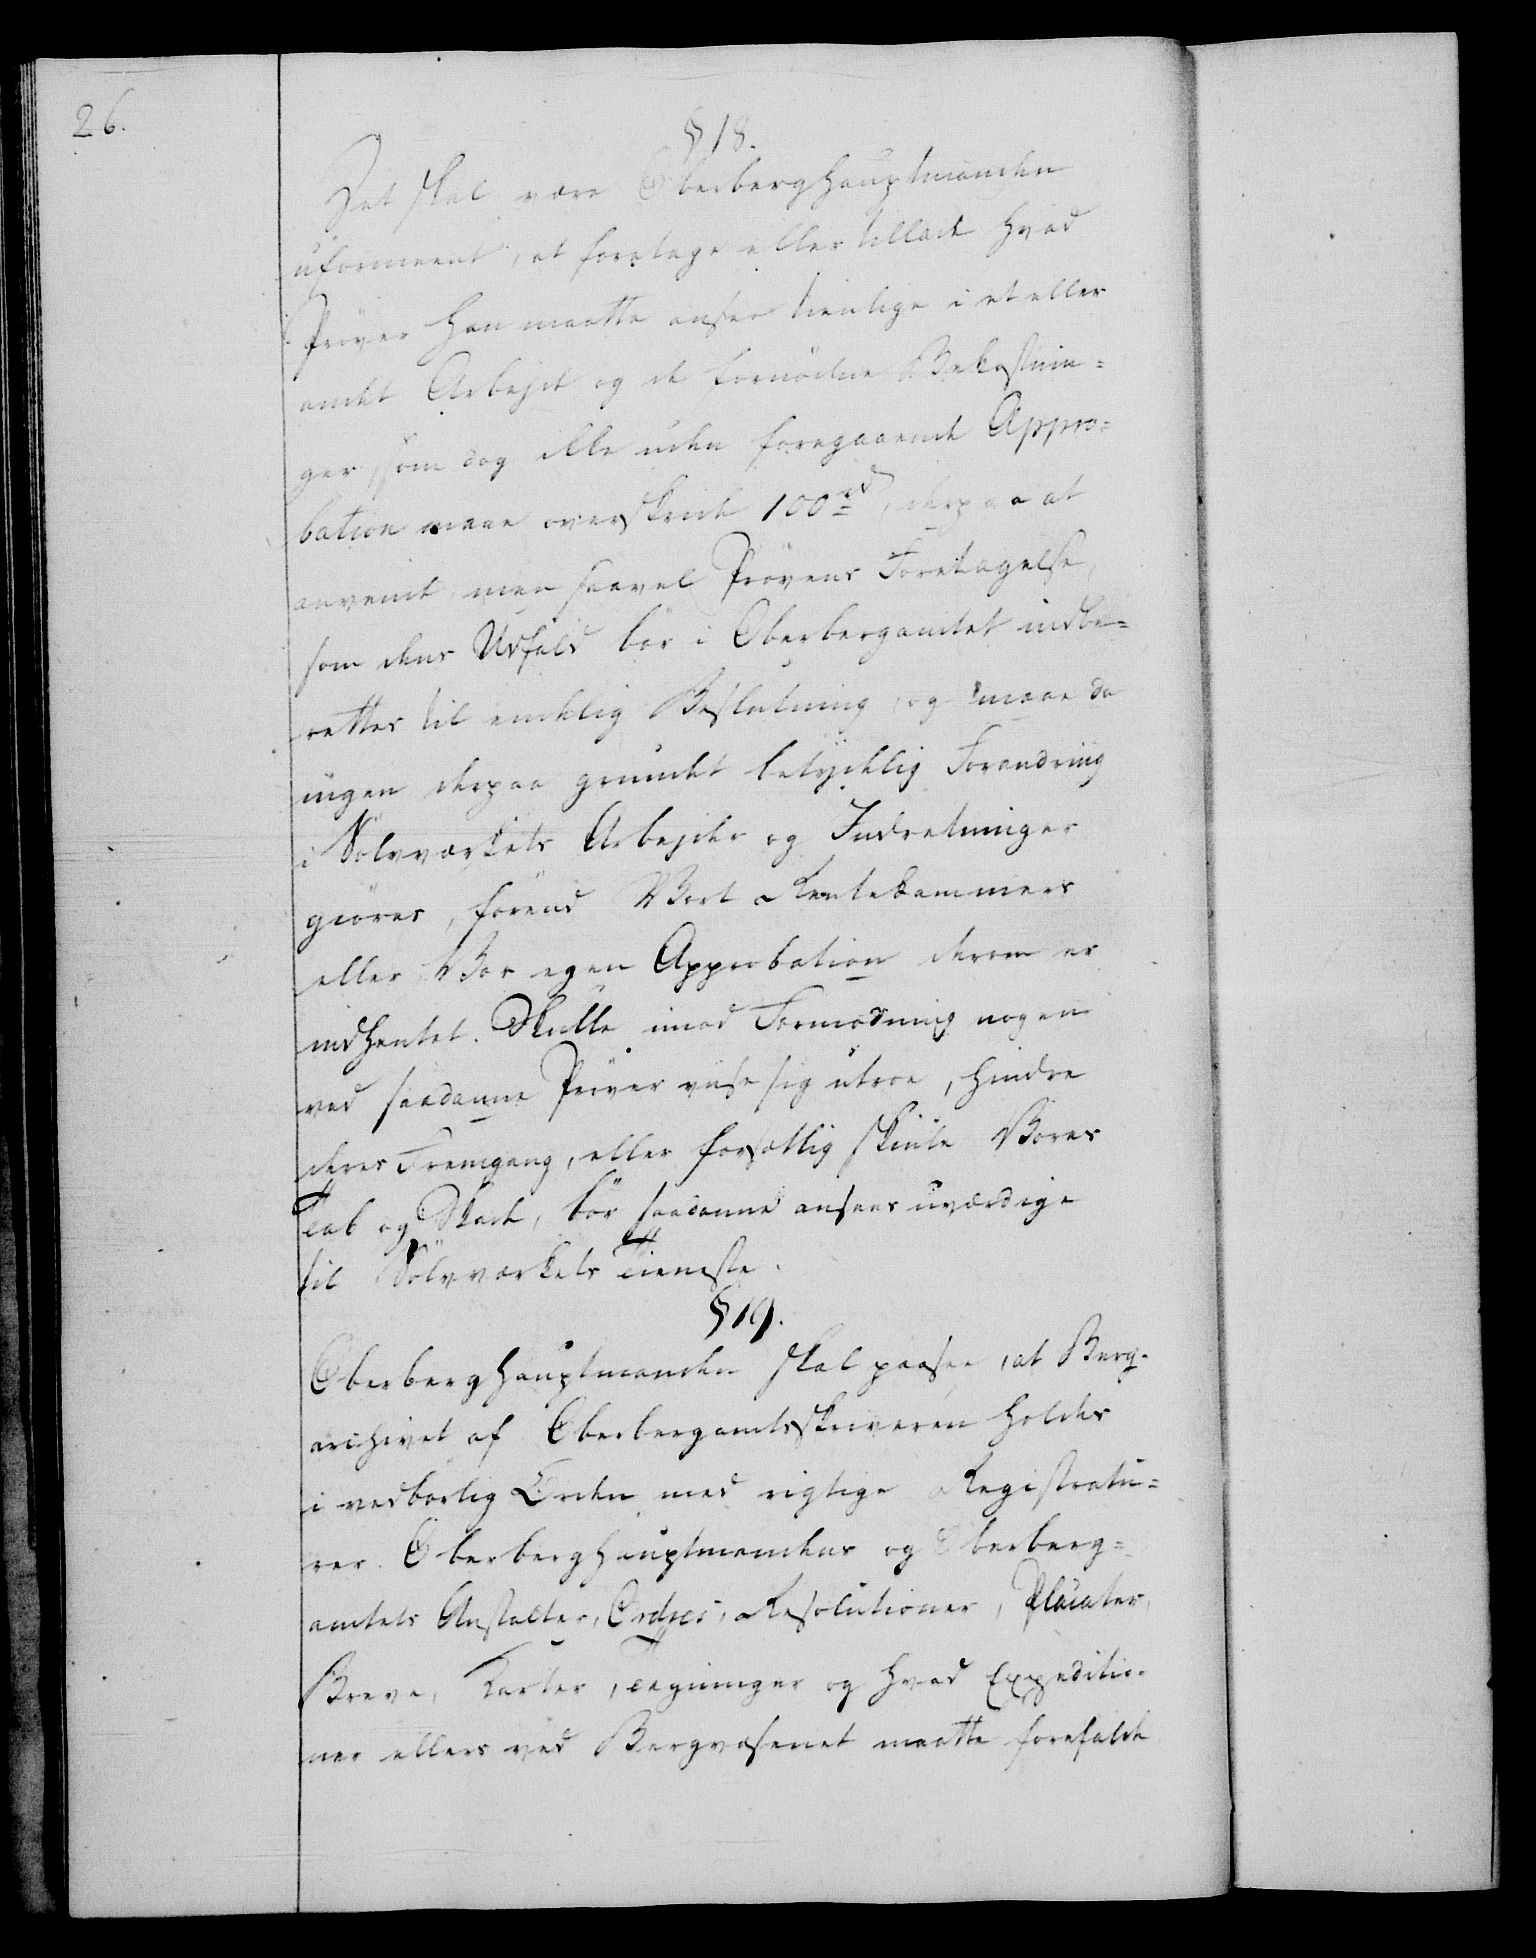 26.
§ 18.
Det skal være Oberberghauptmanden
uformeent, at foretage eller tillade hvad
Prøver han maatte ansee tienlige i et eller
andet Arbejde og de fornødne Bekostnin=
ger, som dog ikke uden foregaaende Appro=
bation maae overskride 100 rd, derpaa at
anvende, men saavel Prøvens Foretagelse,
som dens Udfald bør i Oberbergamtet indbe=
rettes til endelig Beslutning, og maae da
ingen derpaa grundet betydelig Forandring
i Sølvværkets Arbejder og Indretninger
giøres, førend Vort Rentekammers
eller Vor egen Approbation derom er
indhentet. Skulle imod Formodning nogen
ved saadanne Prøver viise sig utroe, hindre
deres Fremgang, eller forsætlig skiule Vores
Tab og Skade, bør saadanne ansees uværdige
til Sølvværkets Tieneste.
§ 19.
Oberberghauptmanden skal paasee, at Berg-
archivet af Oberbergamtsskriveren holdes
i vedbørlig Orden med rigtige Registratu=
rer. Oberberghauptmandens og Oberberg=
amtets Anstalter, Ordres, Resolutioner, Placater,
Breve, Karter, Tegninger og hvad Expeditio-
ner ellers ved Bergvæsenet maatte forefalde